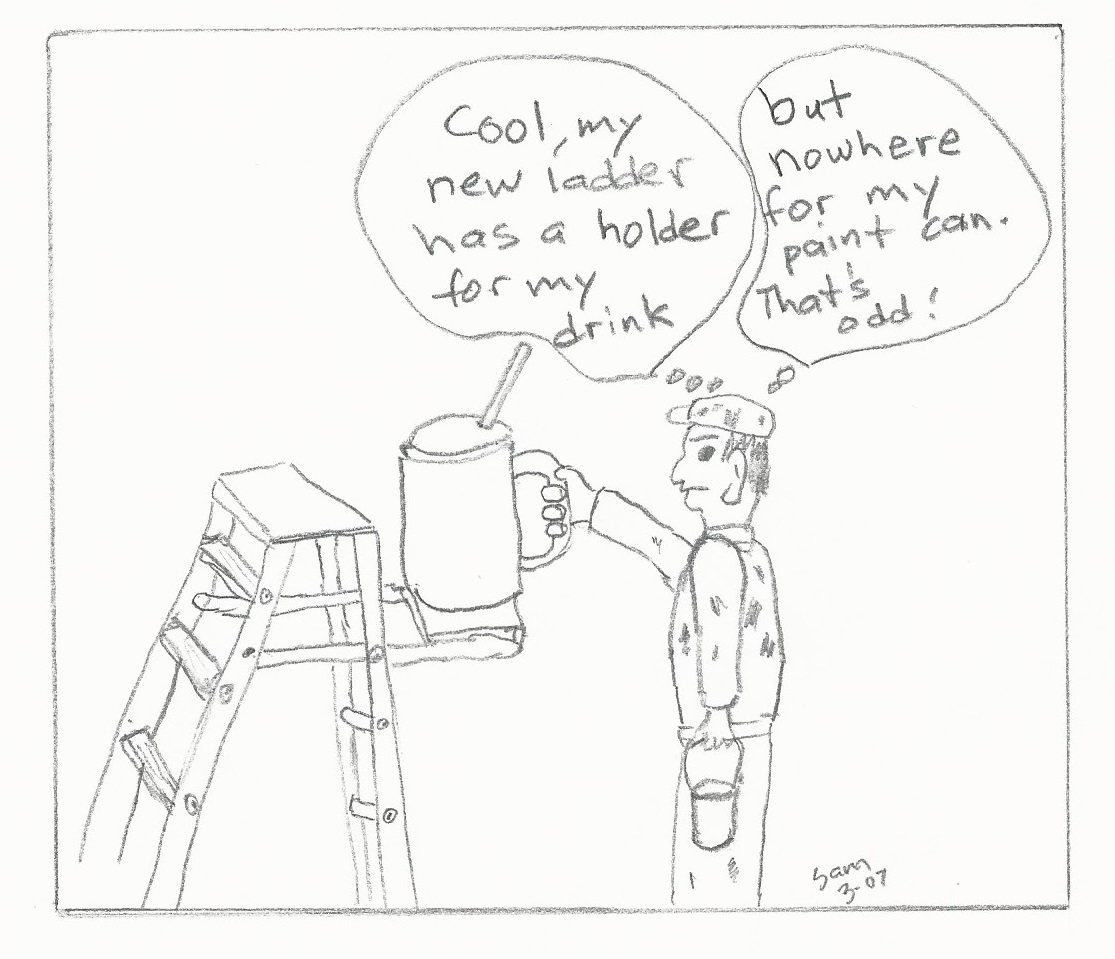 Cool, my
new ladder
has a holder
for my
drink
but
nowhere
for my
paint can.
That's
odd!
Sam
3-07